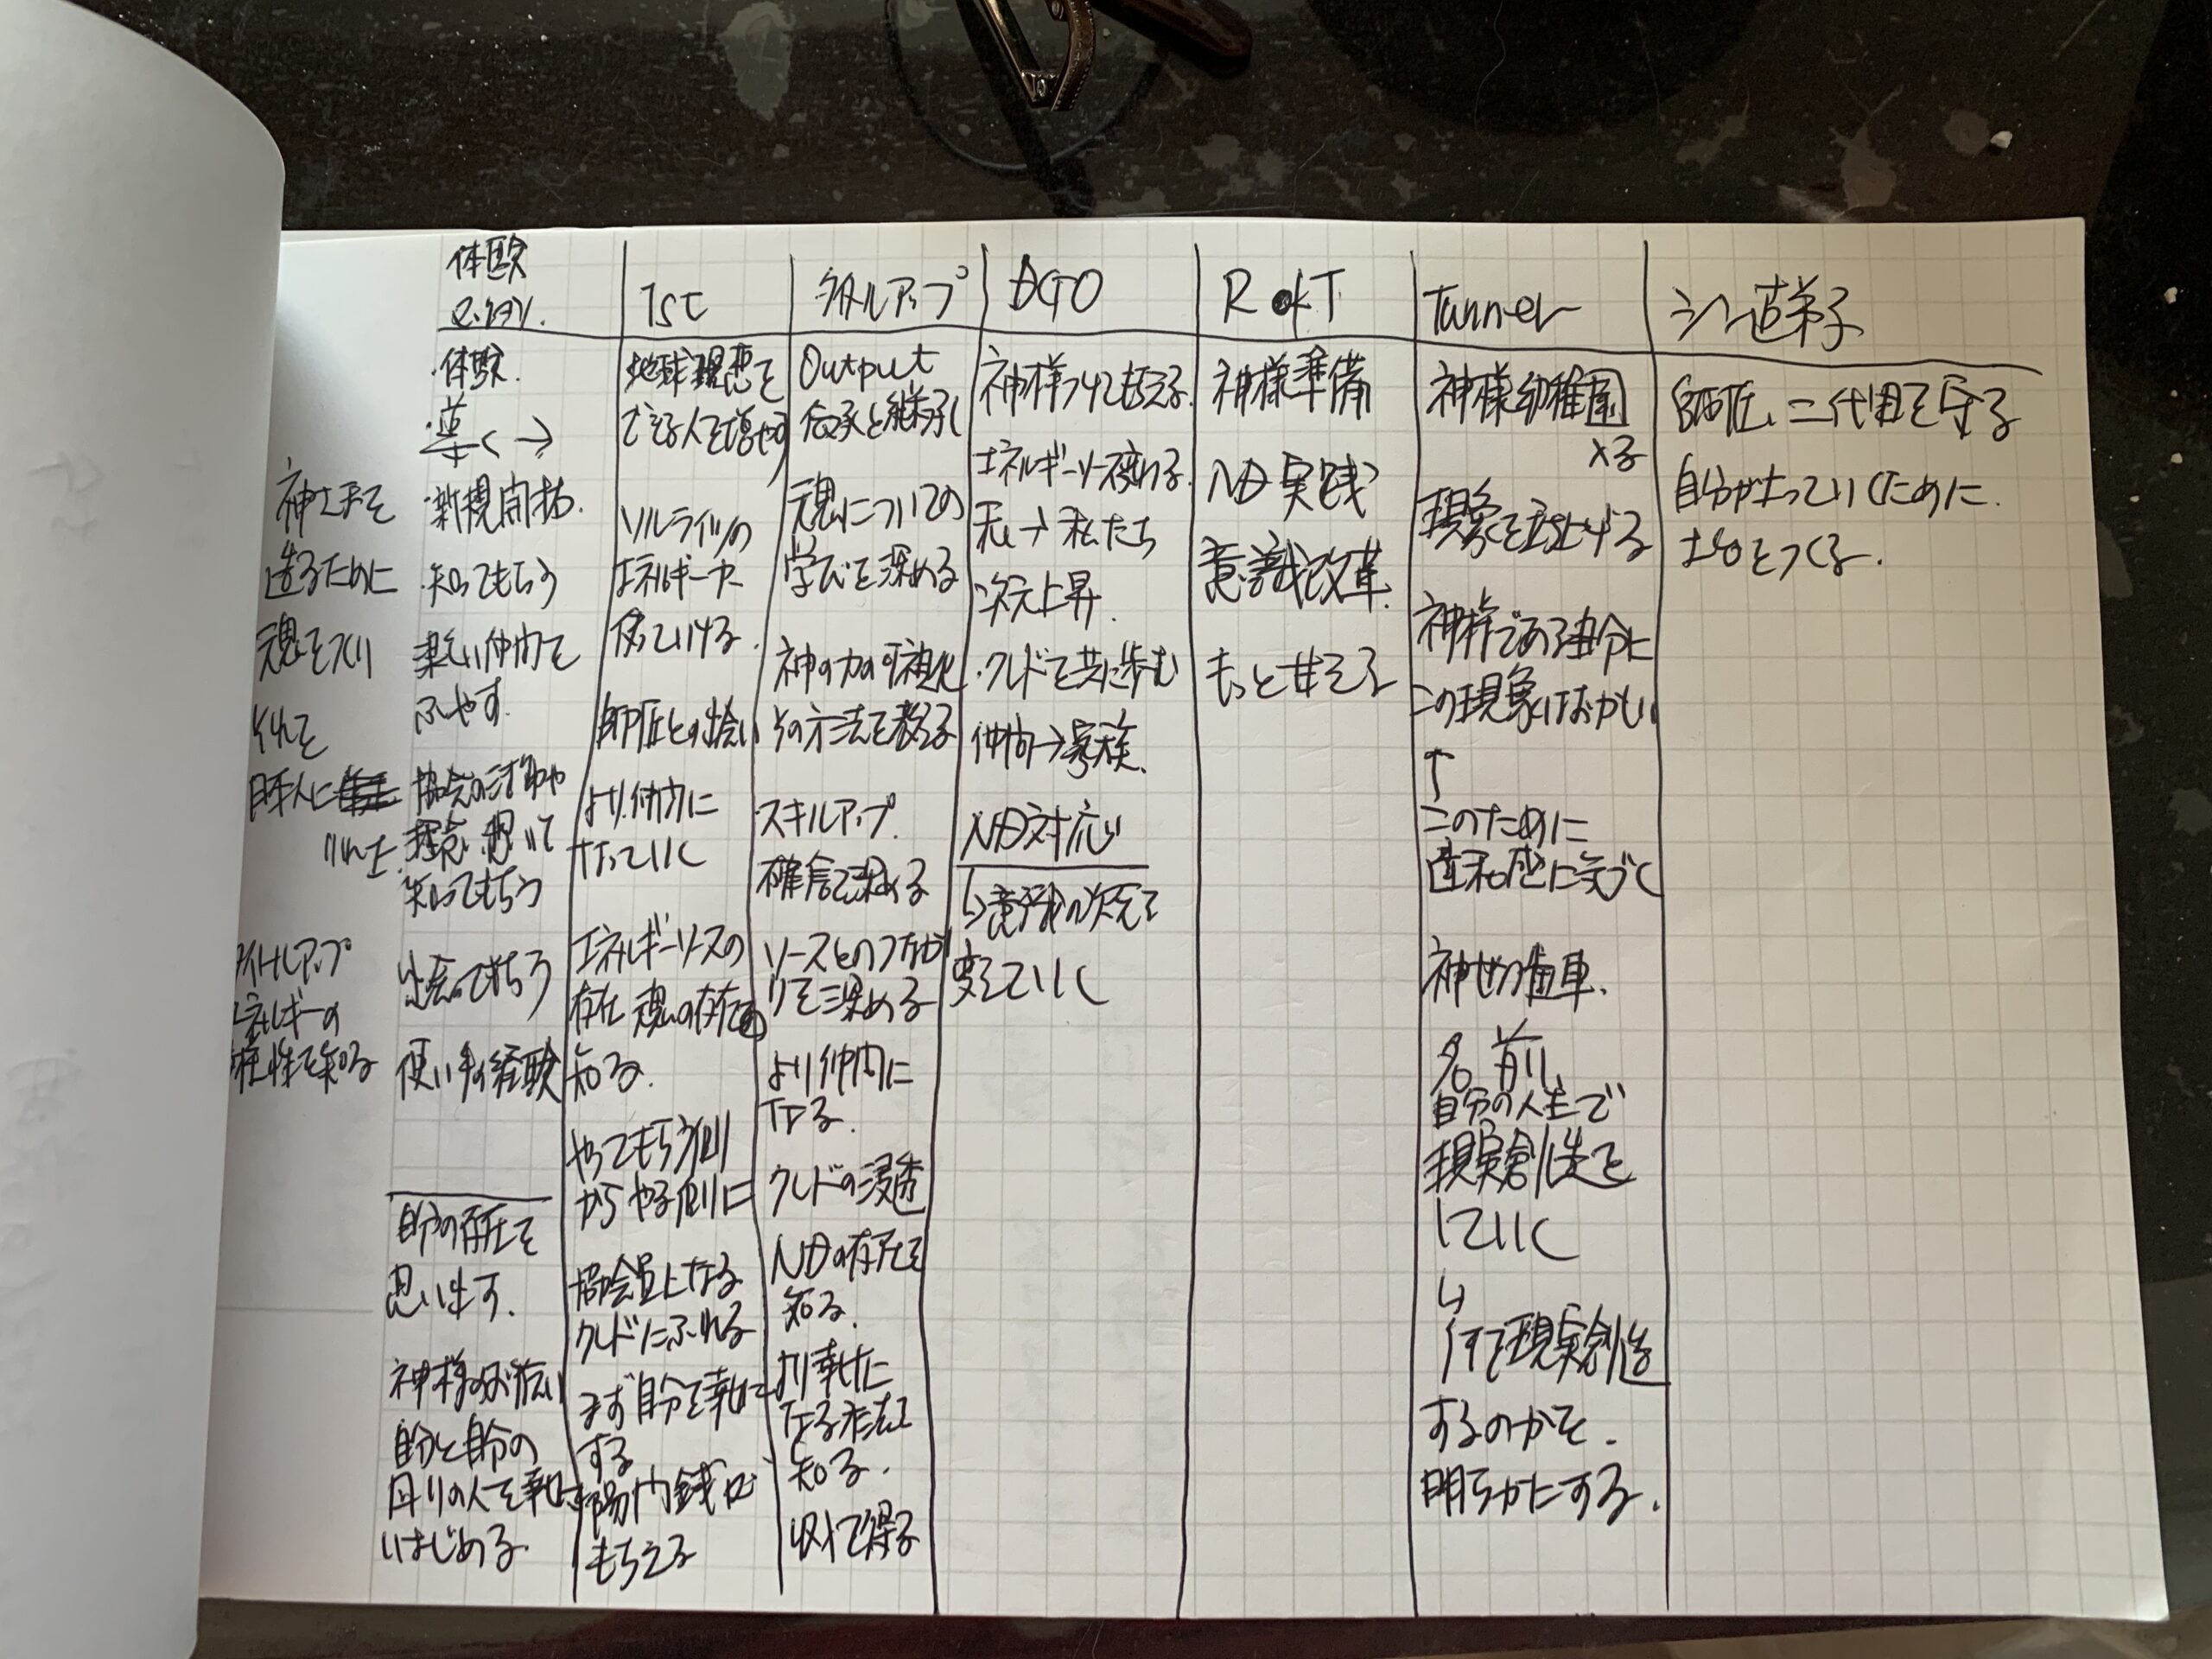 神さまを
造るために
魂をつくり
それを
日本人に
タイトルアップ
エネルギーの
種性を知る
体験
・体験.
・導く→
・新規開拓.
・知ってもらう
楽しい仲間を
ふやす.
協会の活動や
理念 想いを
知ってもらう
出会ってもらう
使い手の経験
自分の存在を
思い出す.
神様のお伝い
自分と自分の
周りの人を幸せ
いはじめる.
1st
地球理念を
できる人を増やす
ソルライツの
エネルギーが
使っていける.
師匠との出会い
より仲間に
なっていく
エネルギーソースの
存在 魂の存在を
知る.
やってもらう側
からやる側に
協会員になる
クレドにふれる
まず自分を幸せに
する
陽门銭が
もらえる
タイトルアップ
Output
伝承と継承
魂についての
学びを深める
神の力の可視化
その方法を教える
スキルアップ.
確信を深める
ソースとのつなが
りを深める
より仲間に
なる.
クレドの浸透
NDの存在を
知る.
より幸せに
なる方法を
知る.
収入を得る
DGO
神様つけてもらえる.
エネルギーソース変わる.
私→私たち
次元上昇.
・クレドを共に歩む
仲間→家族.
ND対応
↳意識の次元を
変えていく
R of T
神様準備
ND実践
意識改革.
もっと甘える
Tunnel
神様幼稚園
現象を立ち上げる
神様である自分に
この現象はおかしい
↑
このために
違和感に気づく
神世の歯車.
名前
自分の人生で
現実創造を
していく
↳
何で現実創造
するのかを.
明らかにする.
シン直弟子
師匠、二代目を守る
自分が立っていくために.
土台をつくる.